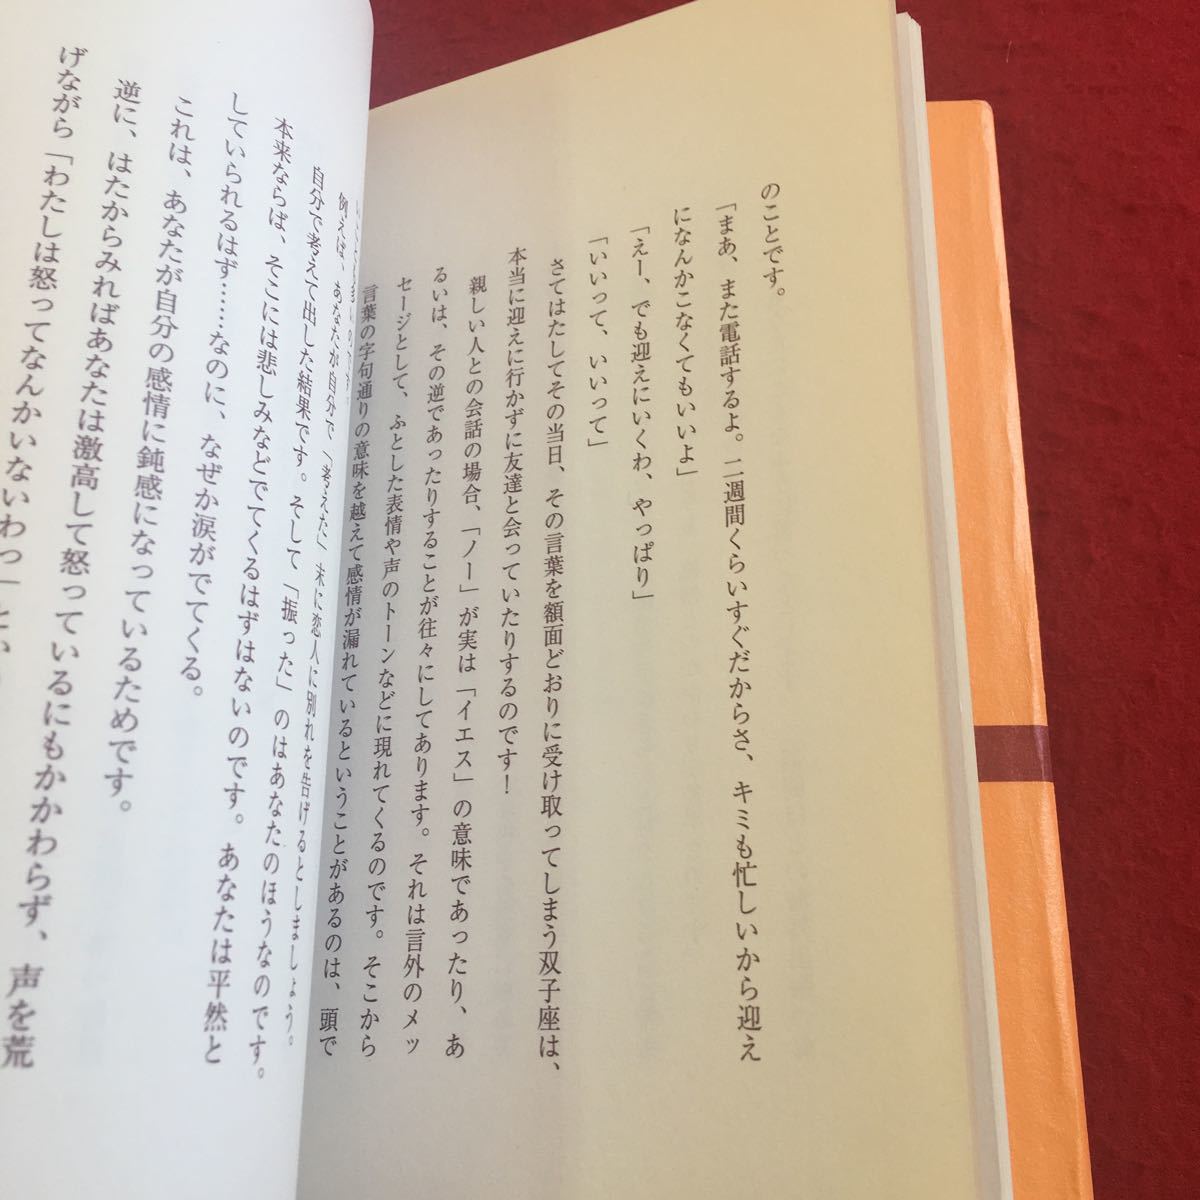 のことです。
「まあ、また電話するよ。二週間くらいすぐだからさ、キミも忙しいから迎え
になんかこなくてもいいよ」
「えー、でも迎えにいくわ、やっぱり」
「いいって、いいって」
さてはたしてその当日、その言葉を額面どおりに受け取ってしまう双子座は、
本当に迎えに行かずに友達と会っていたりするのです！
親しい人との会話の場合、「ノー」が実は「イエス」の意味であったり、あ
るいは、その逆であったりすることが往々にしてあります。それは言外のメッ
セージとして、ふとした表情や声のトーンなどに現れてくるのです。そこから
言葉の字句通りの意味を越えて感情が漏れているということがあるのは、頭で
例えば、あなたが自分で「考えた」末に恋人に別れを告げるとしましょう。
自分で考えて出した結果です。そして「振った」のはあなたのほうなのです。
本来ならば、そこには悲しみなどでてくるはずはないのです。あなたは平然と
していられるはず……なのに、なぜか涙がでてくる。
これは、あなたが自分の感情に鈍感になっているためです。
逆に、はたからみればあなたは激高して怒っているにもかかわらず、声を荒
げながら「わたしは怒ってなんかいないわっ」と